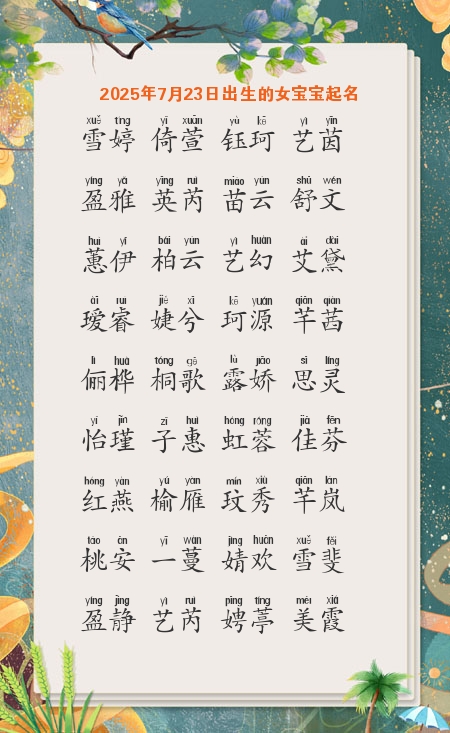 2025年7月23日出生的女宝宝起名
xuě tíng yǐ xuān yù kē yì yīn
雪婷 倚萱 钰珂 艺茵
yíng yǎ yīng ruì miáo yún shū wén
盈雅 英芮 苗云 舒文
huì yī bǎi yún yì huàn ài dài
蕙伊 柏云 艺幻 艾黛
ài ruì jié xī kē yuán qiān qiàn
瑷睿 婕兮 珂源 芊茜
lì huà tóng gē lù jiāo sī líng
俪桦 桐歌 露娇 思灵
yí jǐn zǐ huì hóng róng jiā fēn
怡瑾 子惠 虹蓉 佳芬
hóng yàn yú yàn mín xiù qiān lán
红燕 榆雁 玟秀 芊岚
táo ān yī wàn jìng huān xuě fěi
桃安 一蔓 婧欢 雪斐
yíng jìng yì ruì pīng tíng měi xiá
盈静 艺芮 娉葶 美霞